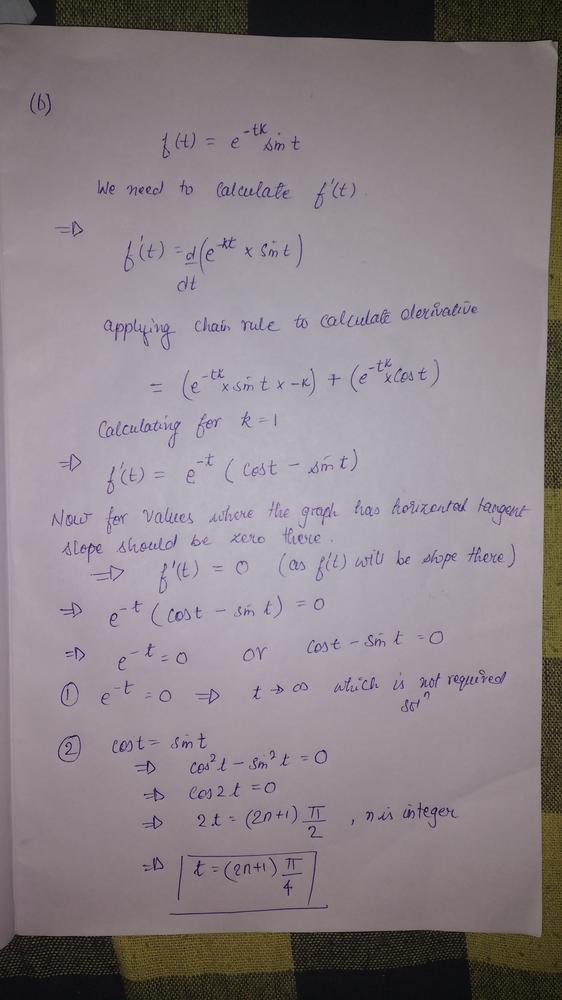 (b)
f(t) = e^{-tk} sin t
We need to calculate f'(t)
⇒ f'(t) = d/dt (e^{-kt} × sin t)
applying chain rule to calculate derivative
= (e^{-tk} × sin t × -k) + (e^{-tk} × cos t)
Calculating for k = 1
⇒ f'(t) = e^{-t} (cos t - sin t)
Now for values where the graph has horizontal tangent
slope should be zero there.
⇒ f'(t) = 0 (as f'(t) will be slope there)
⇒ e^{-t} (cos t - sin t) = 0
⇒ e^{-t} = 0 or cos t - sin t = 0
① e^{-t} = 0 ⇒ t → ∞ which is not required
solⁿ
② cos t = sin t
⇒ cos² t - sin² t = 0
⇒ cos 2t = 0
⇒ 2t = (2n+1) π/2 , n is integer
⇒ t = (2n+1) π/4